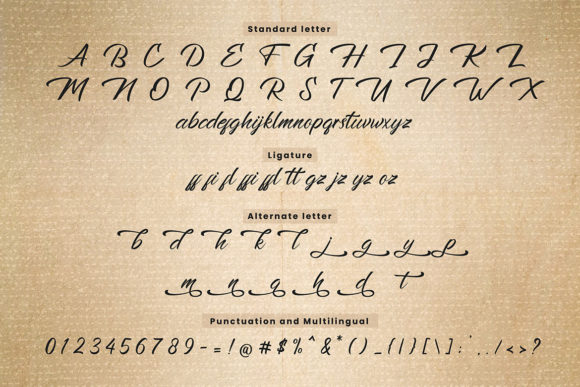 Standard letter
A B C D E F G H I J K L
M N O P Q R S T U V W X
abcdefghijklmnopqrstuvwxyz
Ligature
ff fi fl ffi ffl tt gz jz yz oz
Alternate letter
b d h k l j g y
m n q h d t
Punctuation and Multilingual
0 1 2 3 4 5 6 7 8 9 - = ! @ # $ % ^ & * ( ) _ { | } [ \ ] ; ' , . / < > ?